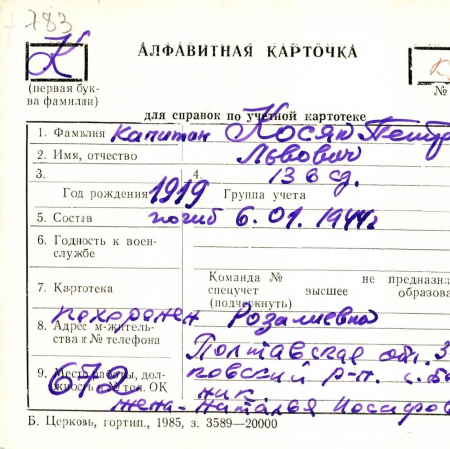 783
К
АЛФАВИТНАЯ КАРТОЧКА
(первая бук-
ва фамилии)
№
для справок по учетной картотеке
1. Фамилия капитан Косяк Петр
2. Имя, отчество Львович
3. 4. 136 сд.
Год рождения 1919 Группа учета
5. Состав погиб 6.01.1944г
6. Годность к воен-
службе
Команда № не предназна
7. Картотека спецучет высшее образова
(подчеркнуть)
похоронен Розалиевка
8. Адрес м-житель-
ства и № телефона
Полтавская обл.
9. Место работы, дол-
жность и № тел. ОК
ковский р-н. с.
672
ник
жена - Наталья Иосифов
Б. Церковь, гортип., 1985, з. 3589—20000